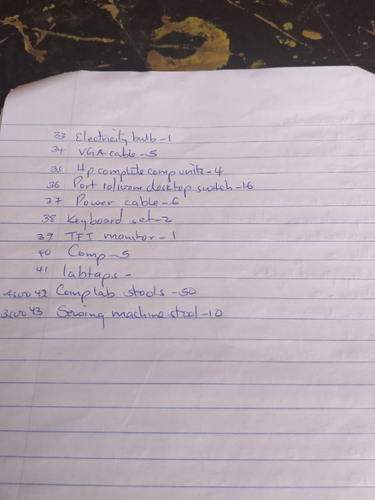 33 Electricity bulb - 1
34 VGA cable - 5
35 Hp complete comp units - 4
36 Port desktop switch - 16
37 Power cable - 6
38 Keyboard set - 2
39 TFT monitor - 1
40 Comp - 5
41 labtaps -
42 Comp lab stools - 50
43 Sewing machine stool - 10